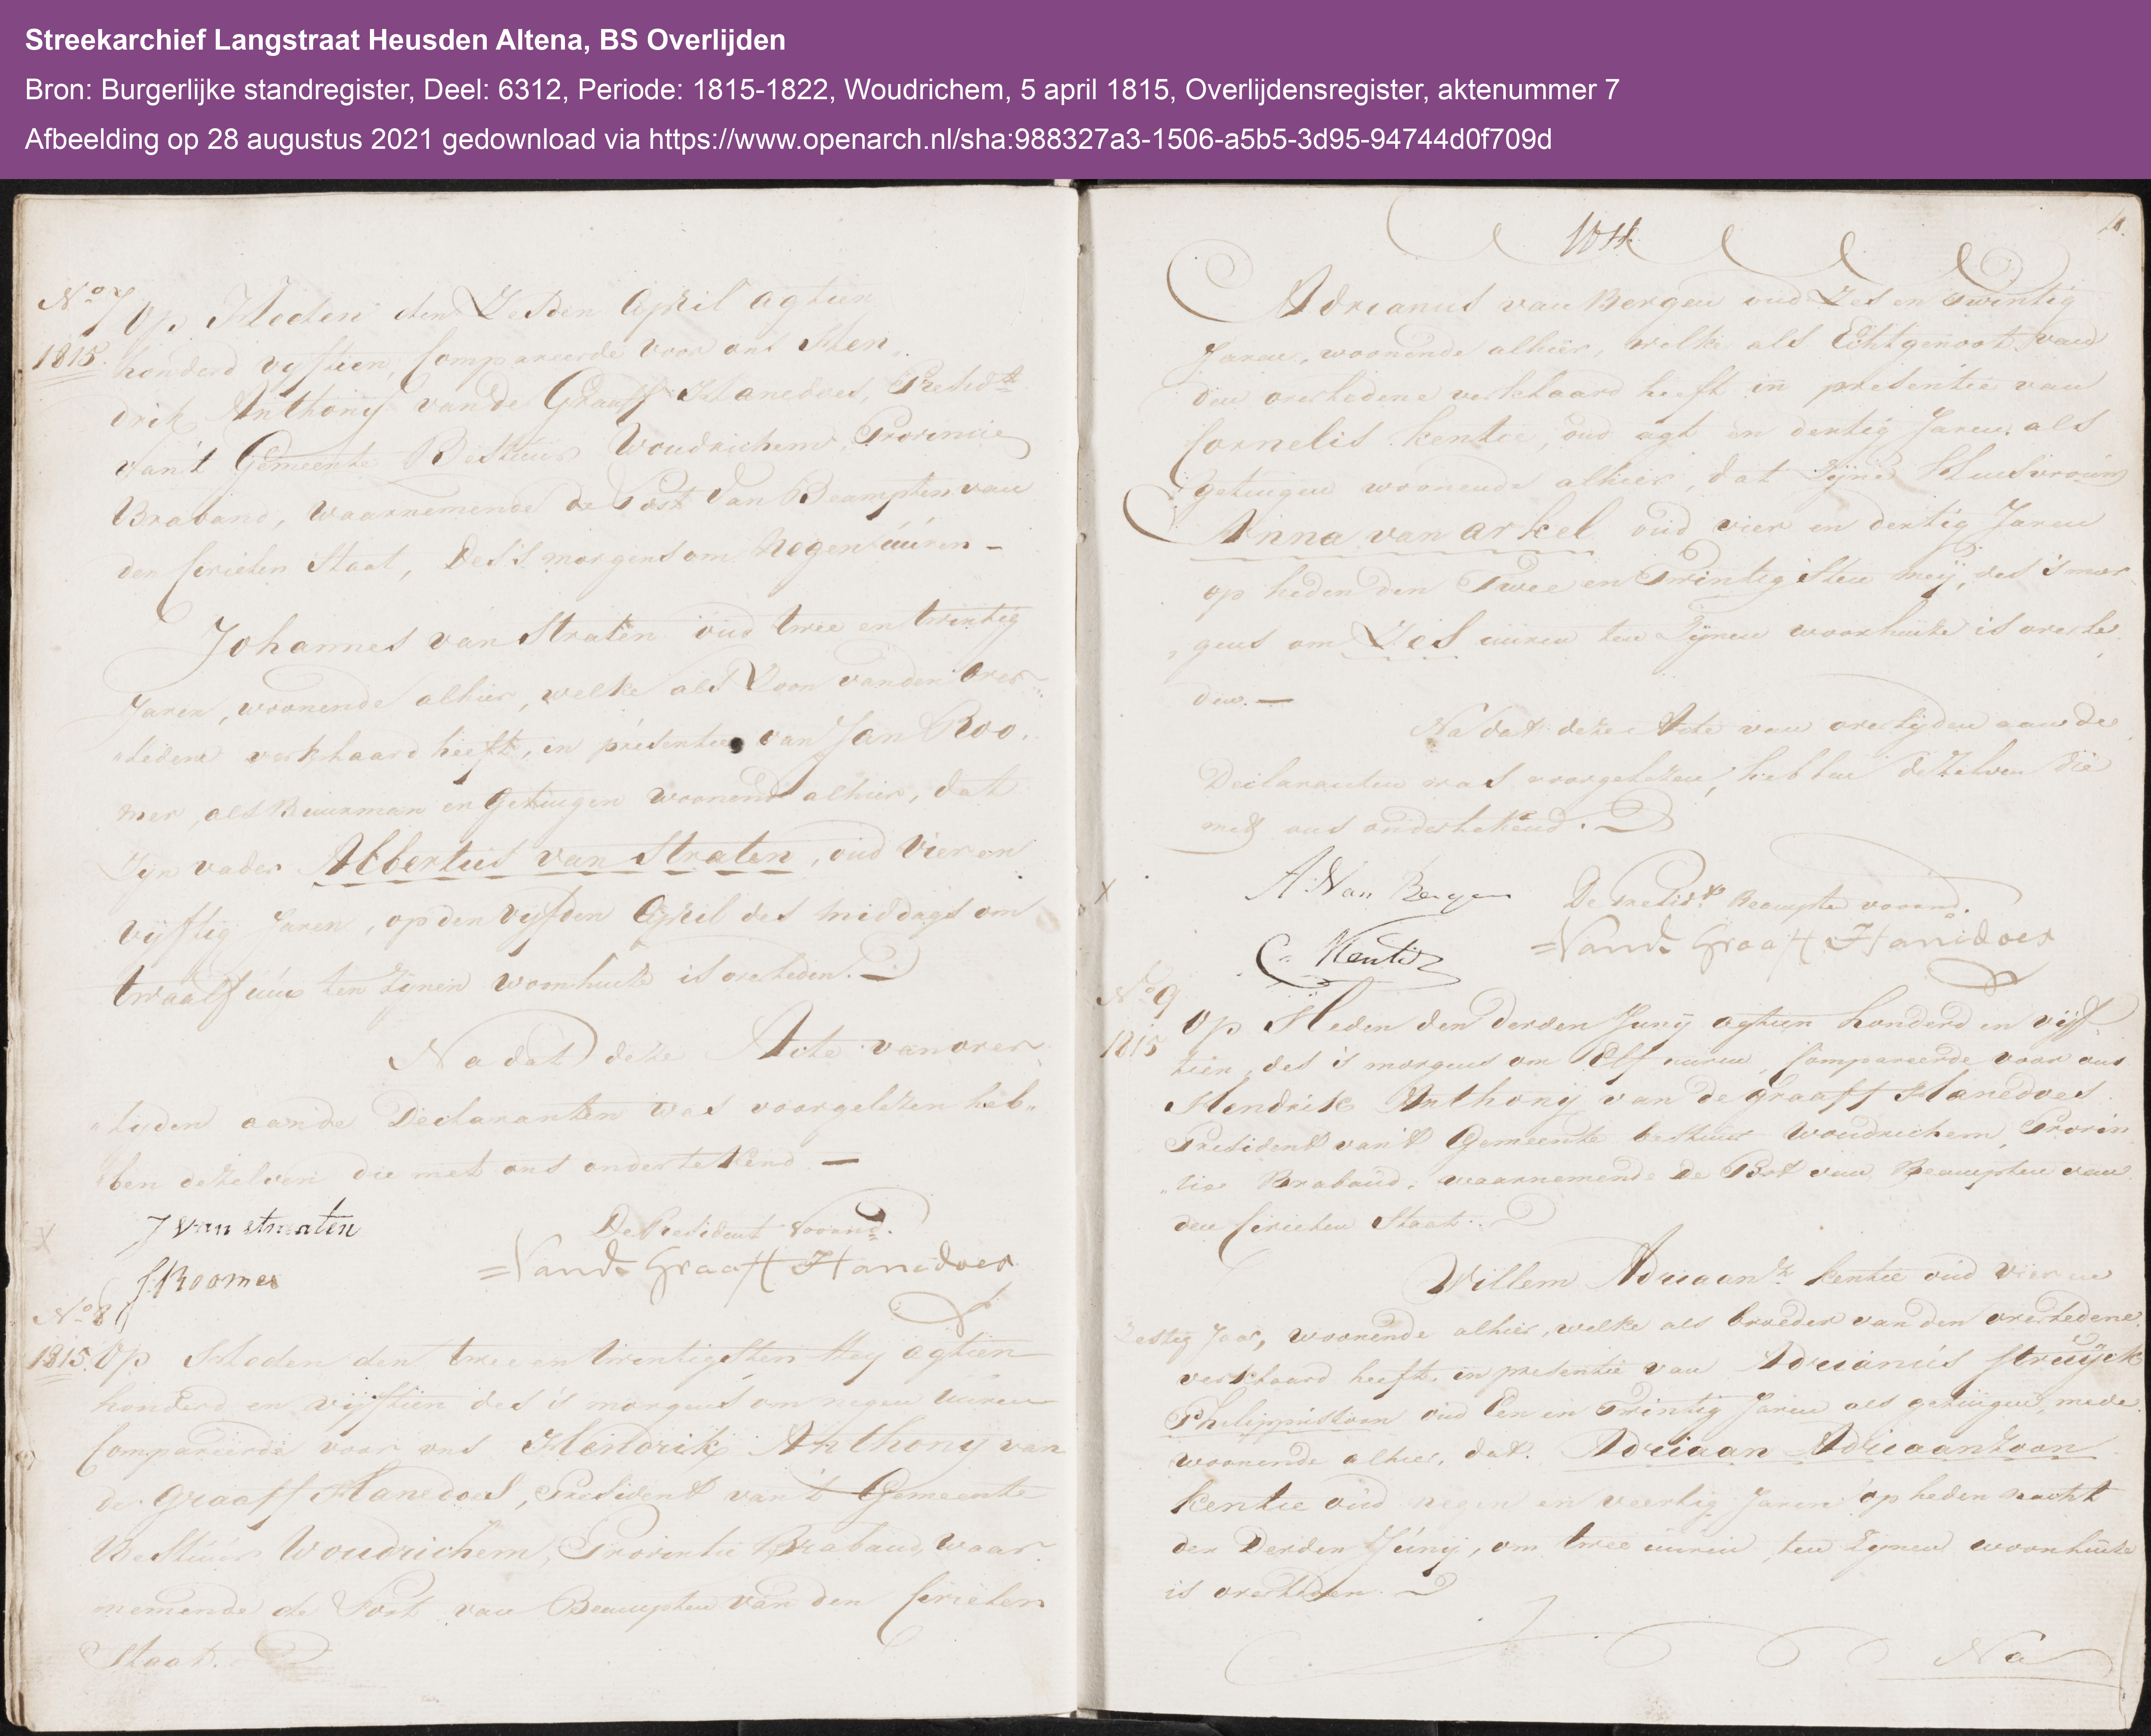 Streekarchief Langstraat Heusden Altena, BS Overlijden
Bron: Burgerlijke standregister, Deel: 6312, Periode: 1815-1822, Woudrichem, 5 april 1815, Overlijdensregister, aktenummer 7
Afbeelding op 28 augustus 2021 gedownload via https://www.openarch.nl/sha:988327a3-1506-a5b5-3d95-94744d0f709d
No 7
1815.
Op Heden den Zesden April agtien
honderd vyftien, Compareerde voor ons Hen„
drik Anthony van de Graaff Hanedoes, Presidt
van't Gemeente Bestuur Woudrichem, Provincie
Braband, waarnemende de Post van Beampten van
den Civielen Staat, des's morgens om Negen uuren –
Johannes van Straten oud twee en twintig
Jaren, woonende alhier, welke als Zoon van den over„
„ledene verklaard heeft, in presentie van Jan Roo„
mer, als Buurman en Getuigen woonend alhier, dat
Zyn vader Albertus van Straten, oud vier en
vyftig Jaren, op den vyfden April des middags om
twaalf uur ten zynen woonhuize is overleden.
Na dat deze Acte van over„
„lyden aan de Declaranten was voorgelezen heb„
„ben dezelven die met ons ondertekend —
J van straten
De President voornd.
J. Roomer
Vand Graaff Hanedoes
No 8
1815.
Op Heden den twee en twintigsten Mey agtien
honderd en vyftien des 's morgens om negen uuren
Compareerde voor ons Hendrik Anthony van
de Graaff Hanedoes, President van't Gemeente
Bestuur Woudrichem, Provintie Braband, waar„
nemende de Post van Beampten van den Civielen
Staat.
Adrianus van Bergen oud Zes en Twintig
Jaren, woonende alhier, welke als Echtgenoot van
den overledene verklaard heeft in presentie van
Cornelis Kentie, oud agt en dertig Jaren als
getuigen woonende alhier, dat Zyne Huisvrouw
Anna van Arkel oud vier en dertig Jaren
op heden den Twee en Twintigsten mey, des 's mor„
„gens om Zes uuren ten Zynen woonhuize is overle„
den. —
Na dat deze Acte van overlyden aan de
Declaranten was voorgelezen, hebben dezelven die
met ons ondertekend.
A. Van Bergen
De Presidt Beampte voornd.
C. Kentie
Vand Graaff Hanedoes
No 9
1815
Op Heden den Derden Juny agtien honderd en vyf„
tien, des 's morgens om Elf uuren, Compareerde voor ons
Hendrik Anthony van de Graaff Hanedoes
President van't Gemeente bestuur Woudrichem, Provin
„tie Braband, waarnemende de Post van Beampten van
den Civielen Staat.
Willem Adriaansz kentie oud vier en
Zestig Jaar, woonende alhier, welke als broeder van den overledene
verklaard heeft, in presentie van Adrianus Struyck
Philippuszoon oud Een en Twintig Jaren als getuigen mede
woonende alhier, dat Adriaan Adriaanzoon
Kentie oud negen en veertig Jaren op heden nacht
den Derden Juny, om twee uuren, ten Zynen woonhuize
is overleden.
Na